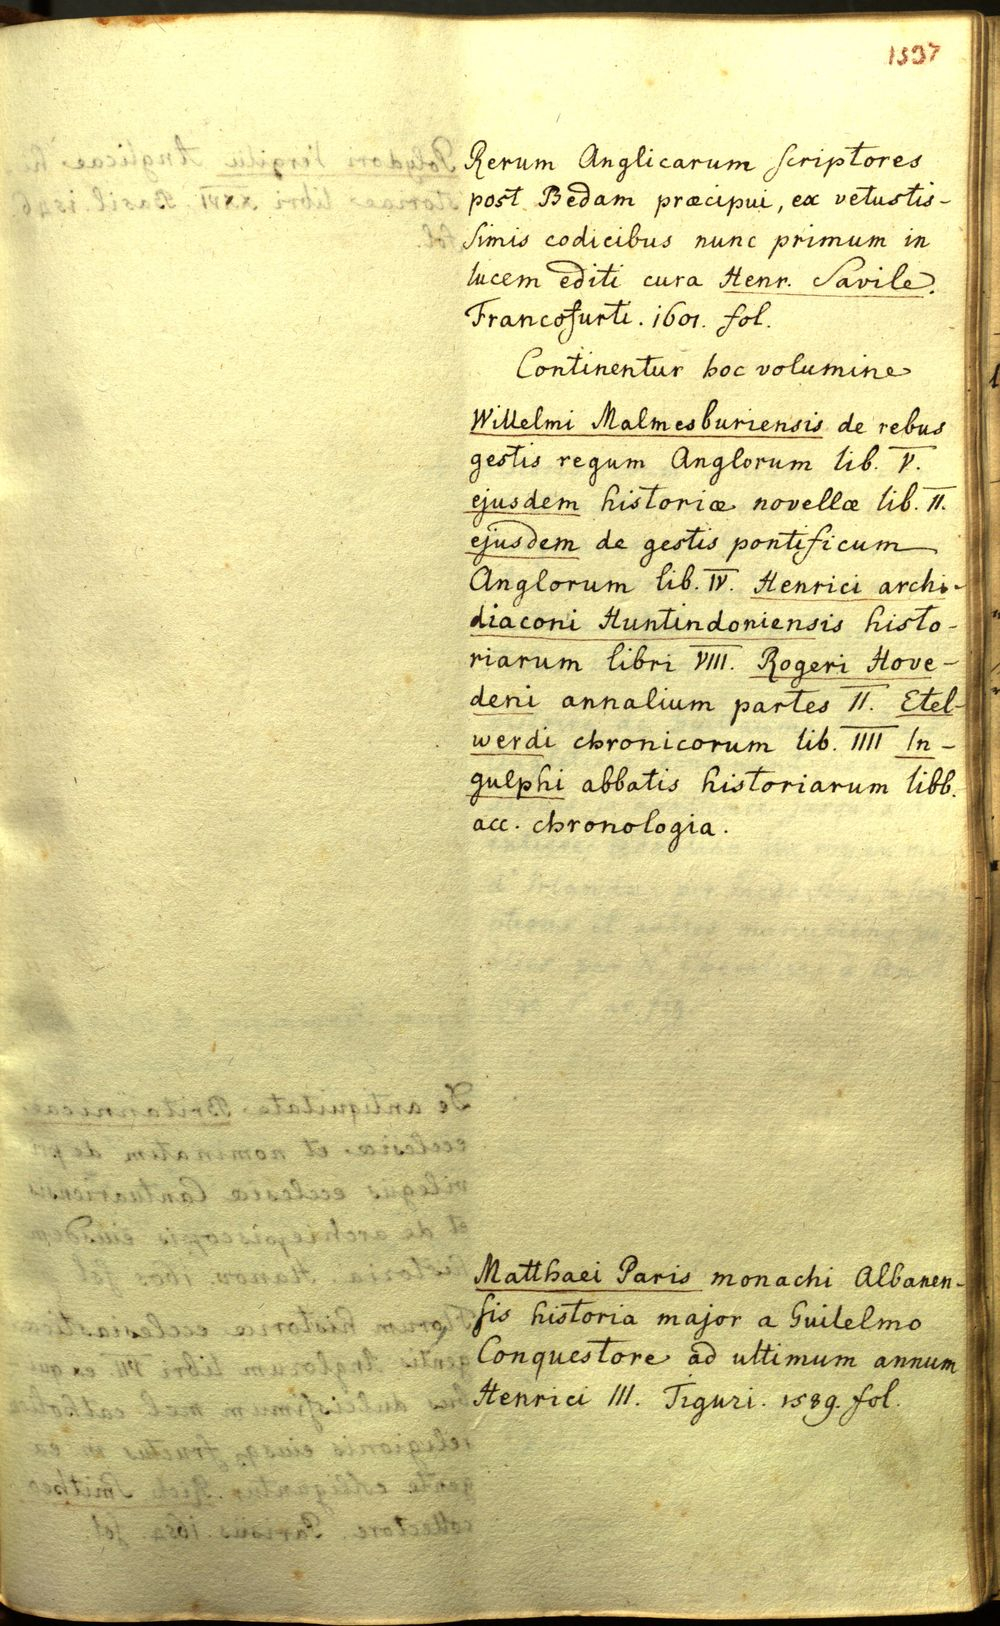 1537
Rerum Anglicarum scriptores
post Bedam præcipui, ex vetustis-
simis codicibus nunc primum in
lucem editi cura Henr. Savile.
Francofurti. 1601. fol.
Continentur hoc volumine
Willelmi Malmesburiensis de rebus
gestis regum Anglorum lib. V.
ejusdem historiæ novellæ lib. II.
ejusdem de gestis pontificum
Anglorum lib. IV. Henrici archi-
diaconi Huntindoniensis histo-
riarum libri VIII. Rogeri Hove-
deni annalium partes II. Etel-
werdi chronicorum lib. IIII In-
gulphi abbatis historiarum libb.
acc. chronologia.
Matthaei Paris monachi Albanen-
sis historia major a Guilelmo
Conquestore ad ultimum annum
Henrici III. Tiguri. 1589. fol.